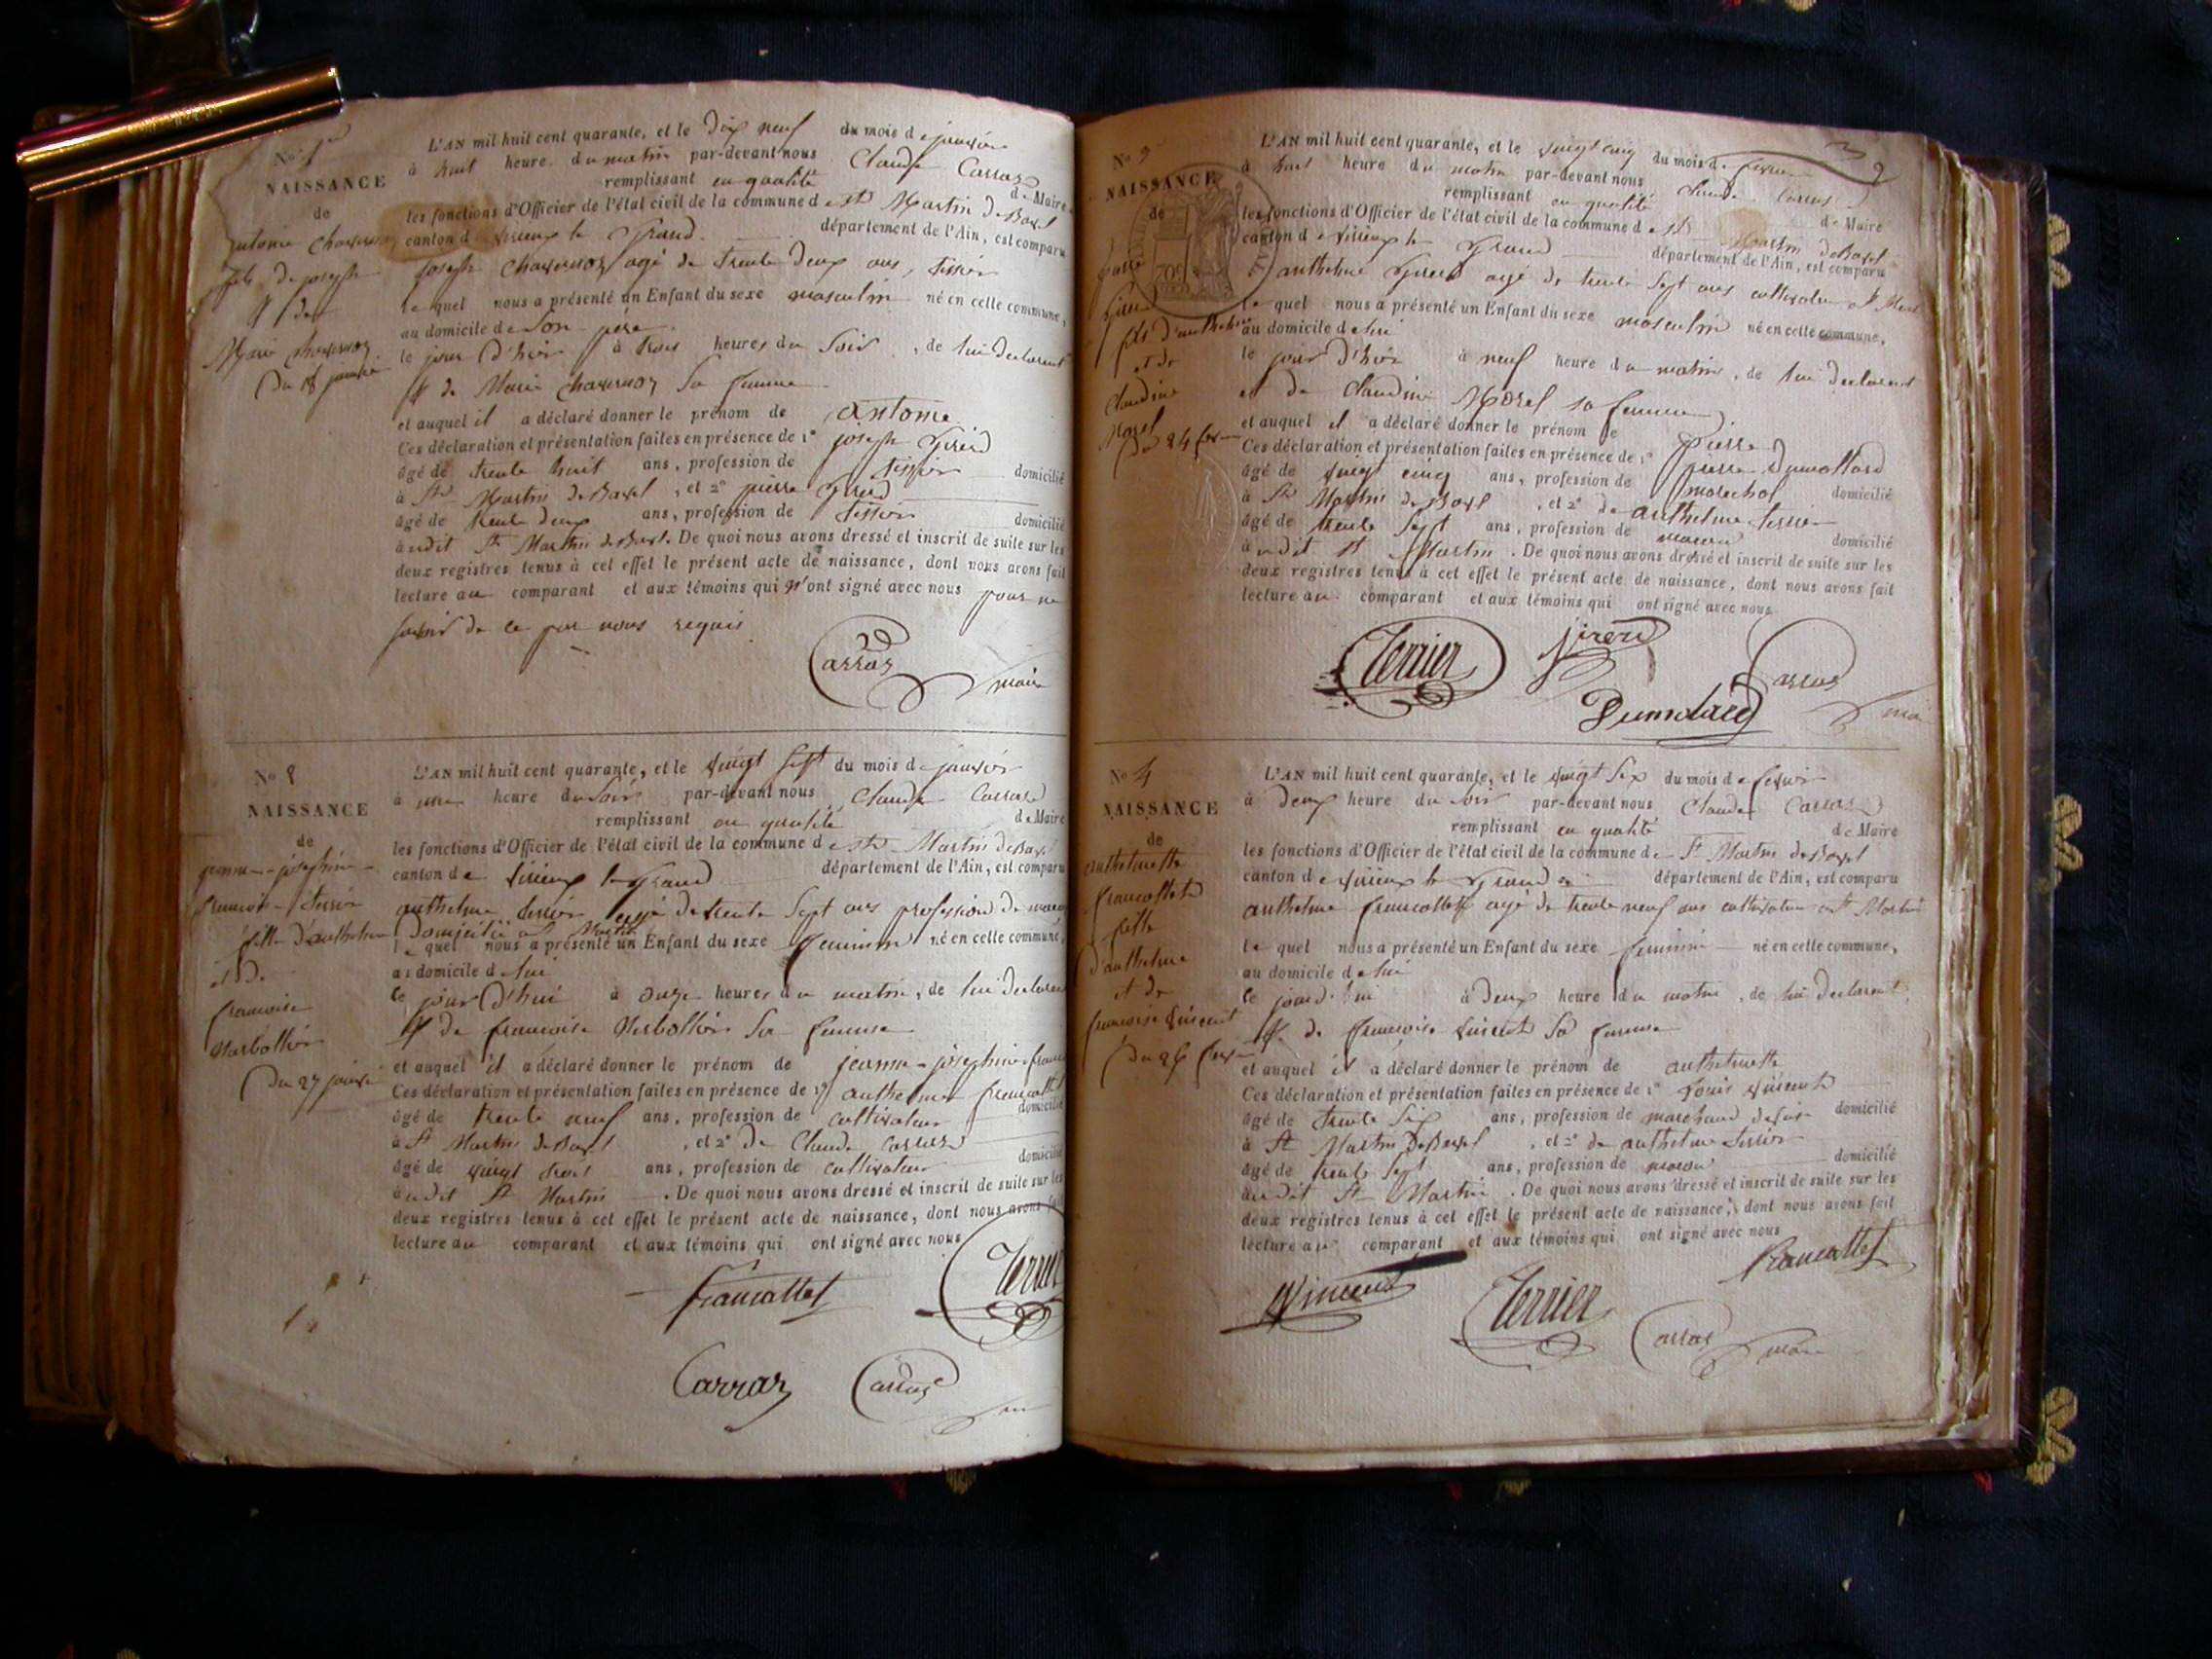 No 1er
NAISSANCE
de
antoine
fils de joseph
et de
Marie
Du 18 janvier
L'AN mil huit cent quarante, et le Dix neuf du mois de janvier
à huit heure du matin par-devant nous Claude Carraz
remplissant en qualité de Maire
les fonctions d'Officier de l'état civil de la commune de St Martin de Bavel
canton de virieux le Grand département de l'Ain, est comparu
joseph agé de trente deux ans, tissier
le quel nous a présenté un Enfant du sexe masculin né en cette commune,
au domicile de son père
le jour d'hier à trois heures du soir, de lui declarant
et de Marie sa femme
et auquel il a déclaré donner le prénom de antoine
Ces déclaration et présentation faites en présence de 1° joseph
âgé de trente huit ans, profession de tissier domicilié
à St Martin de Bavel, et 2° pierre
âgé de trente deux ans, profession de tissier domicilié
audit St Martin de Bavel. De quoi nous avons dressé et inscrit de suite sur les
deux registres tenus à cet effet le présent acte de naissance, dont nous avons fait
lecture au comparant et aux témoins qui n'ont signé avec nous pour ne
savoir de ce par nous requis
Carraz
maire
No 2
NAISSANCE
de
jeanne-joséphine
françoise terrier
fille d'anthelme
et de
francoise
Du 27 janvier
L'AN mil huit cent quarante, et le vingt sept du mois de janvier
à une heure du soir par-devant nous Claude Carraz
remplissant en qualité de Maire
les fonctions d'Officier de l'état civil de la commune de St Martin de Bavel
canton de virieux le Grand département de l'Ain, est comparu
anthelme terrier agé de trente sept ans profession de macon
domicilié à St Martin
le quel nous a présenté un Enfant du sexe feminin né en cette commune,
au domicile de lui
ce jour d'hui à onze heures du matin, de lui declarant
et de francoise sa femme
et auquel il a déclaré donner le prénom de jeanne-joséphine-
Ces déclaration et présentation faites en présence de 1° anthelme francallet
âgé de trente neuf ans, profession de cultivateur domicilié
à St Martin de Bavel, et 2° de Claude Carraz
âgé de vingt trois ans, profession de cultivateur domicilié
audit St Martin. De quoi nous avons dressé et inscrit de suite sur les
deux registres tenus à cet effet le présent acte de naissance, dont nous avons fait
lecture au comparant et aux témoins qui ont signé avec nous
francallet Terrier
Carraz Carraz
No 3
NAISSANCE
de
pierre
fils d'anthelme
et de
claudine
Morel
L'AN mil huit cent quarante, et le vingt cinq du mois de fevrier
à huit heure du matin par-devant nous Claude Carraz
remplissant en qualité de Maire
les fonctions d'Officier de l'état civil de la commune de St Martin de Bavel
canton de virieux le Grand département de l'Ain, est comparu
anthelme agé de trente sept ans cultivateur à St
le quel nous a présenté un Enfant du sexe masculin né en cette commune,
au domicile de lui
le jour d'hier à neuf heure du matin, de lui declarant
et de claudine Morel sa femme
et auquel il a déclaré donner le prénom de pierre
Ces déclaration et présentation faites en présence de 1° pierre Dumollard
âgé de vingt cinq ans, profession de marechal domicilié
à St Martin de Bavel, et 2° de anthelme terrier
âgé de trente sept ans, profession de macon domicilié
audit St Martin. De quoi nous avons dressé et inscrit de suite sur les
deux registres tenus à cet effet le présent acte de naissance, dont nous avons fait
lecture au comparant et aux témoins qui ont signé avec nous
Terrier
Dumolard Carraz
No 4
NAISSANCE
de
anthelmette
francallet
fille
d'anthelme
et de
francoise vincent
L'AN mil huit cent quarante, et le vingt six du mois de fevrier
à deux heure du soir par-devant nous Claude Carraz
remplissant en qualité de Maire
les fonctions d'Officier de l'état civil de la commune de St Martin de Bavel
canton de virieux le Grand département de l'Ain, est comparu
anthelme francallet agé de trente neuf ans cultivateur à St Martin
le quel nous a présenté un Enfant du sexe feminin né en cette commune,
au domicile de lui
ce jourd'hui à deux heure du matin, de lui declarant
et de francoise vincent sa femme
et auquel il a déclaré donner le prénom de anthelmette
Ces déclaration et présentation faites en présence de 1° Louis vincent
âgé de trente six ans, profession de marchand domicilié
à St Martin de Bavel, et 2° de anthelme terrier
âgé de trente sept ans, profession de macon domicilié
audit St Martin. De quoi nous avons dressé et inscrit de suite sur les
deux registres tenus à cet effet le présent acte de naissance, dont nous avons fait
lecture au comparant et aux témoins qui ont signé avec nous
francallet
Vincent Terrier
Carraz maire